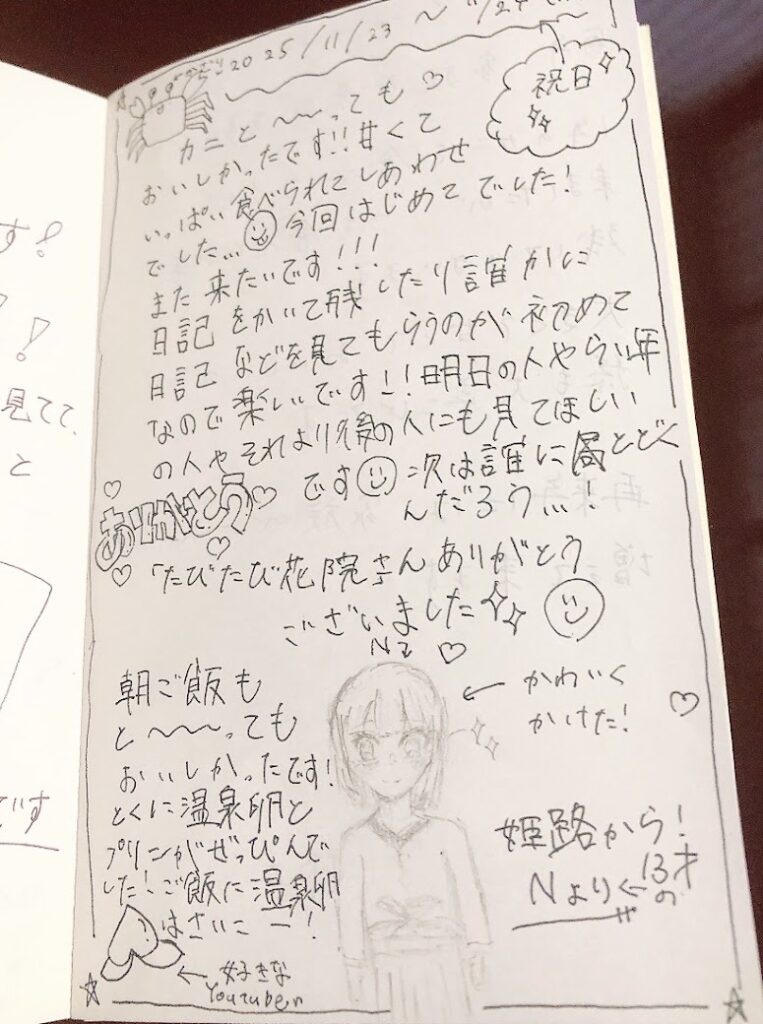 す!
!
見てて、
と
です
2025/11/23 〜 11/24
祝日
カニと〜〜っても♡
おいしかったです!!甘くて
いっぱい食べられてしあわせ
でした... 今回はじめてでした!
また来たいです!!!
日記をかいて残したり誰かに
日記などを見てもらうのが初めて
なので楽しいです!!明日の人やらい年
の人やそれより後の人にも見てほしい
です 次は誰に届とどく
んだろう...!
ありがとう
「たびたび花院さんありがとう
ございました
朝ご飯も
と〜〜〜っても
おいしかったです!
とくに温泉卵と
プリンがぜっぴんで
した!ご飯に温泉卵
はさいこー!
← 好きな
Youtuber
← かわいく
かけた!
姫路から!
Nより←13才
の